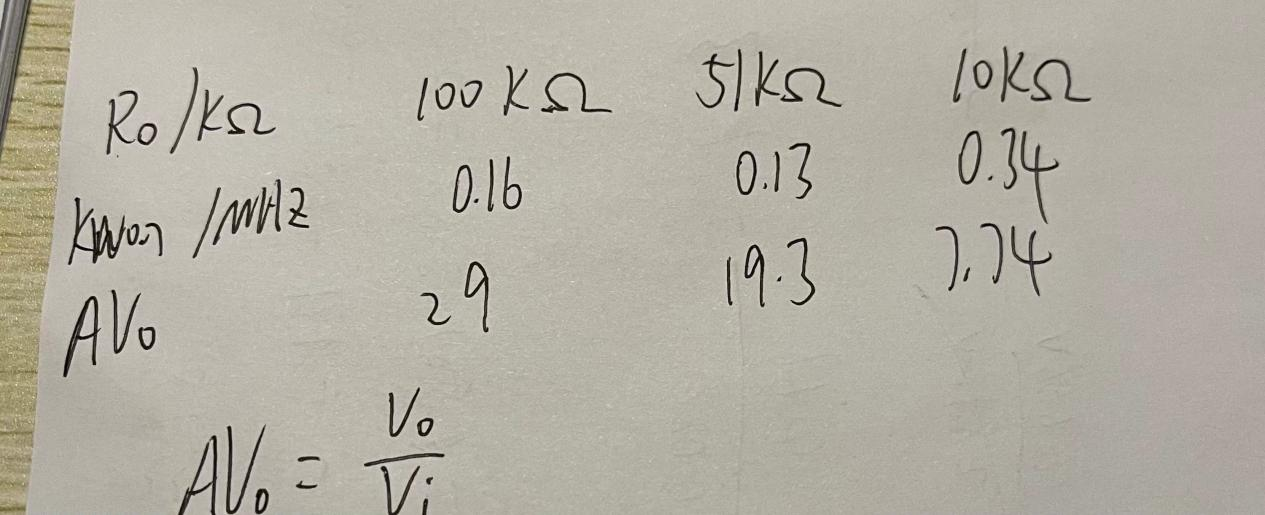 Ro/KΩ 100KΩ 51KΩ 10KΩ
/MHZ 0.16 0.13 0.34
AVo 29 19.3 7.74
AVo = Vo/Vi